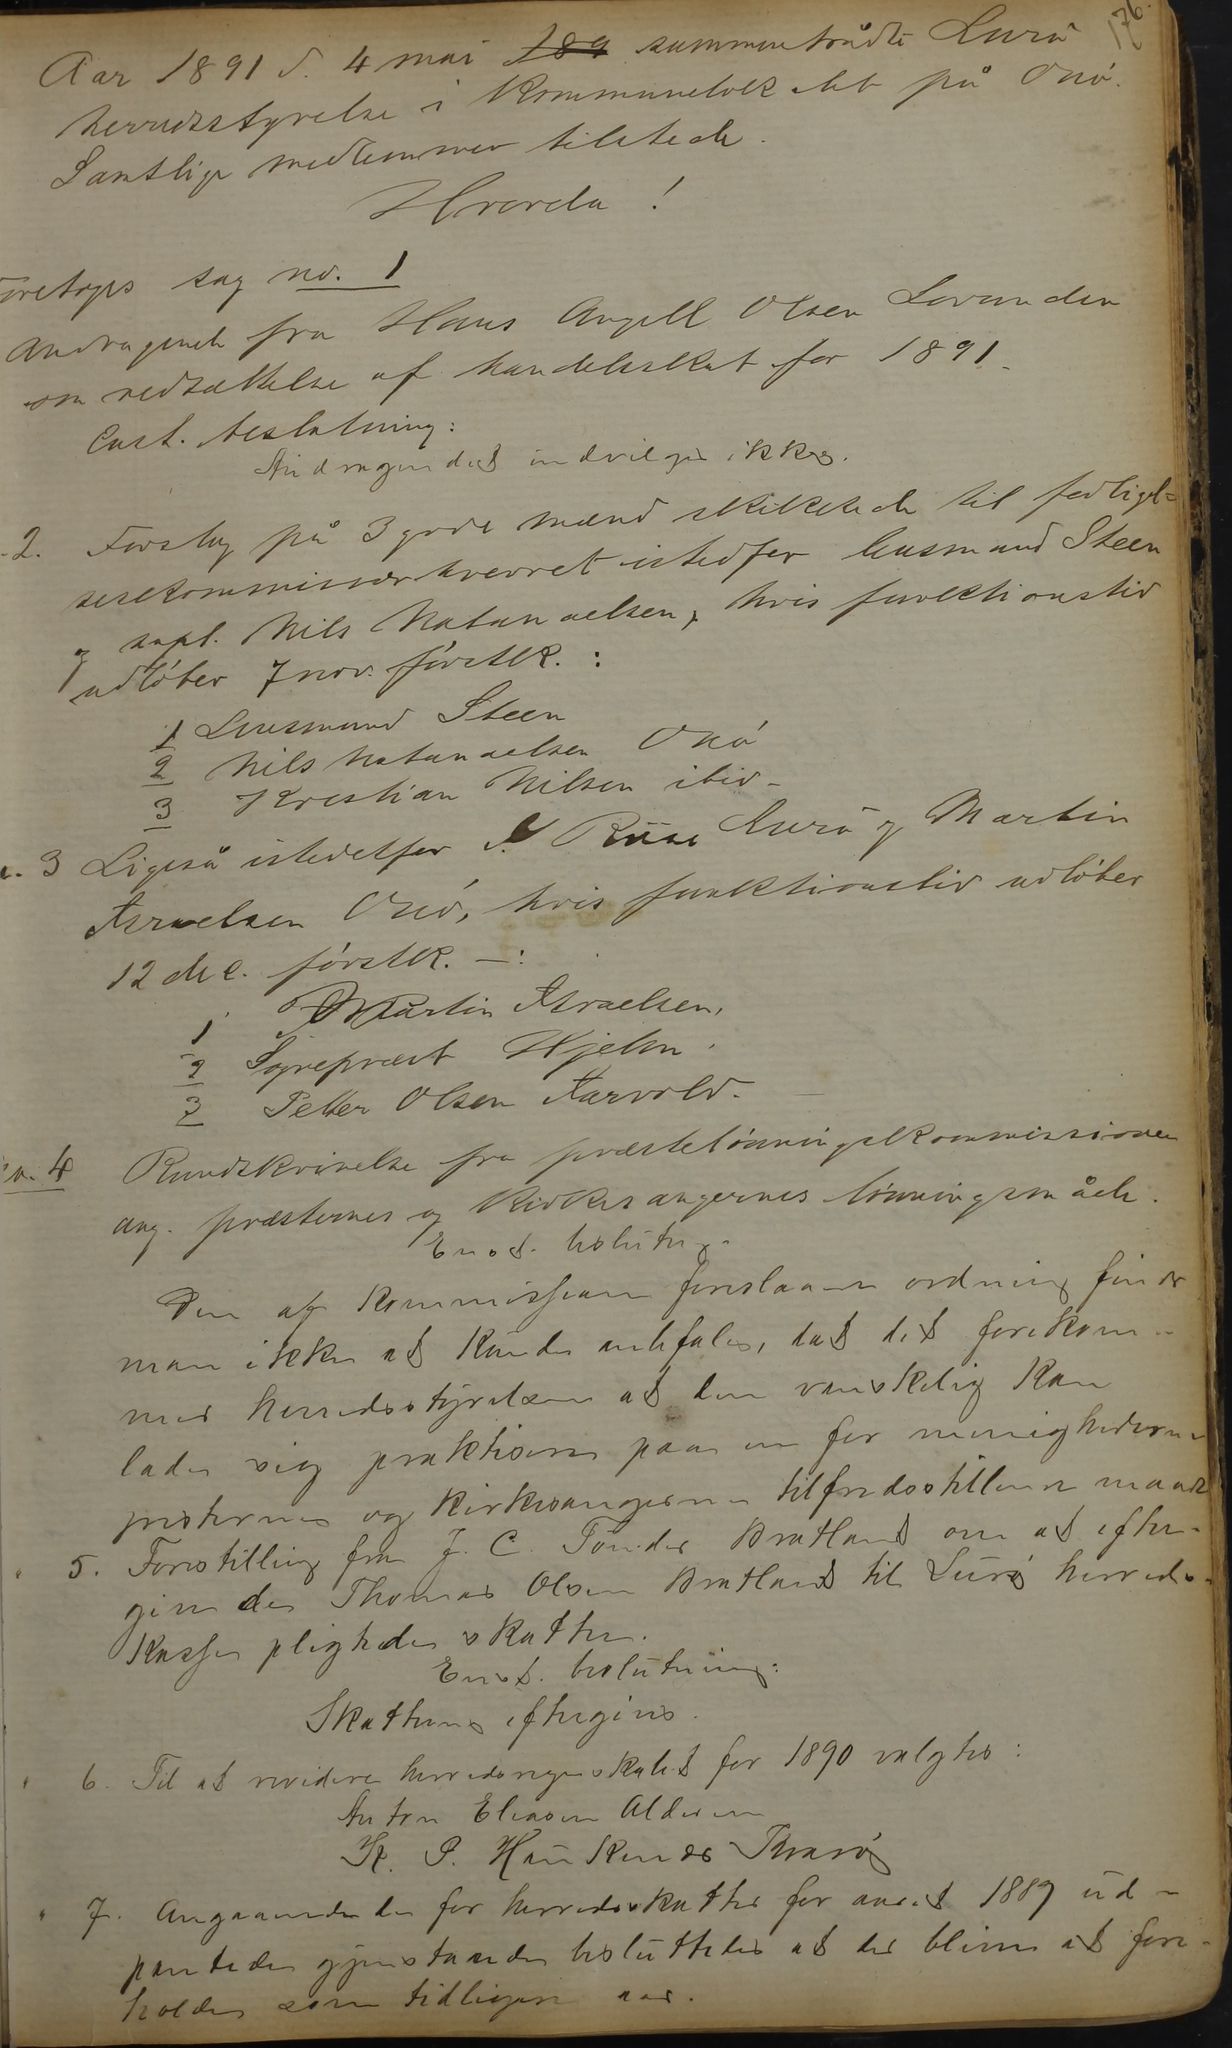 176.
Aar 1891 d. 4 mai 189 sammentrådte Lurö
herredsstyrelse i kommunelokalet på Onö.
Samtlige medlemmer tilstede.
Hvorda!
Foretoges sag no. 1
Andragende fra Hans Angell Olsen Lovunden
om nedsættelse af handelsskat for 1891.
Enst. beslutning:
Andragendet indvilges ikke.
2. Forslag på 3 gode mænd skikkede til forligel=
seskommissærhvervet istedfor Lensmand Steen
og supl. Nils Natanaelsen, hvis funktionstid
udlöber 7 nov. förstk.:
1 Lensmand Steen
2 Nils Natanaelsen Onö
3 Kristian Nilsen ibid-
3 Ligeså istedetfor Riise Lurö og Martin
Israelsen Onö, hvis funktionstid udlöber
12 dec. förstk. -:
1 Martin Israelsen,
2 Sognepræst Hjelm.
3 Petter Olsen Aarvold.
no. 4 Rundskrivelse fra præstelönningskommissionen
ang. præsternes og kirkesangernes lönningsmåde.
Enst. beslutng.
Den af kommissionen foreslaaede ordning finder
man ikke at kunde anbefales, da det forekom-
mer herredsstyrelsen at den vanskelig kan
lade sig praktisere paa en for menighederne
presterne og kirkesangerne tilfredsstillende maade
5. Forestilling fra J. C. Tönder Bratland om at efter-
give den Thomas Olsen Bratland til Lurö herreds-
kasse pligtede skatter.
Enst. beslutning:
Skatterne eftergives.
6. Til at revidere herredsregnskabet for 1890 valgtes:
Anton Eliasen Aldersen
K. P. Haukenes Tonnö
7. Angaaende de for herredsskatter for aaret 1889 ud-
pantede gjenstande besluttedes at det bliver at fore-
holde som tidligere aar.